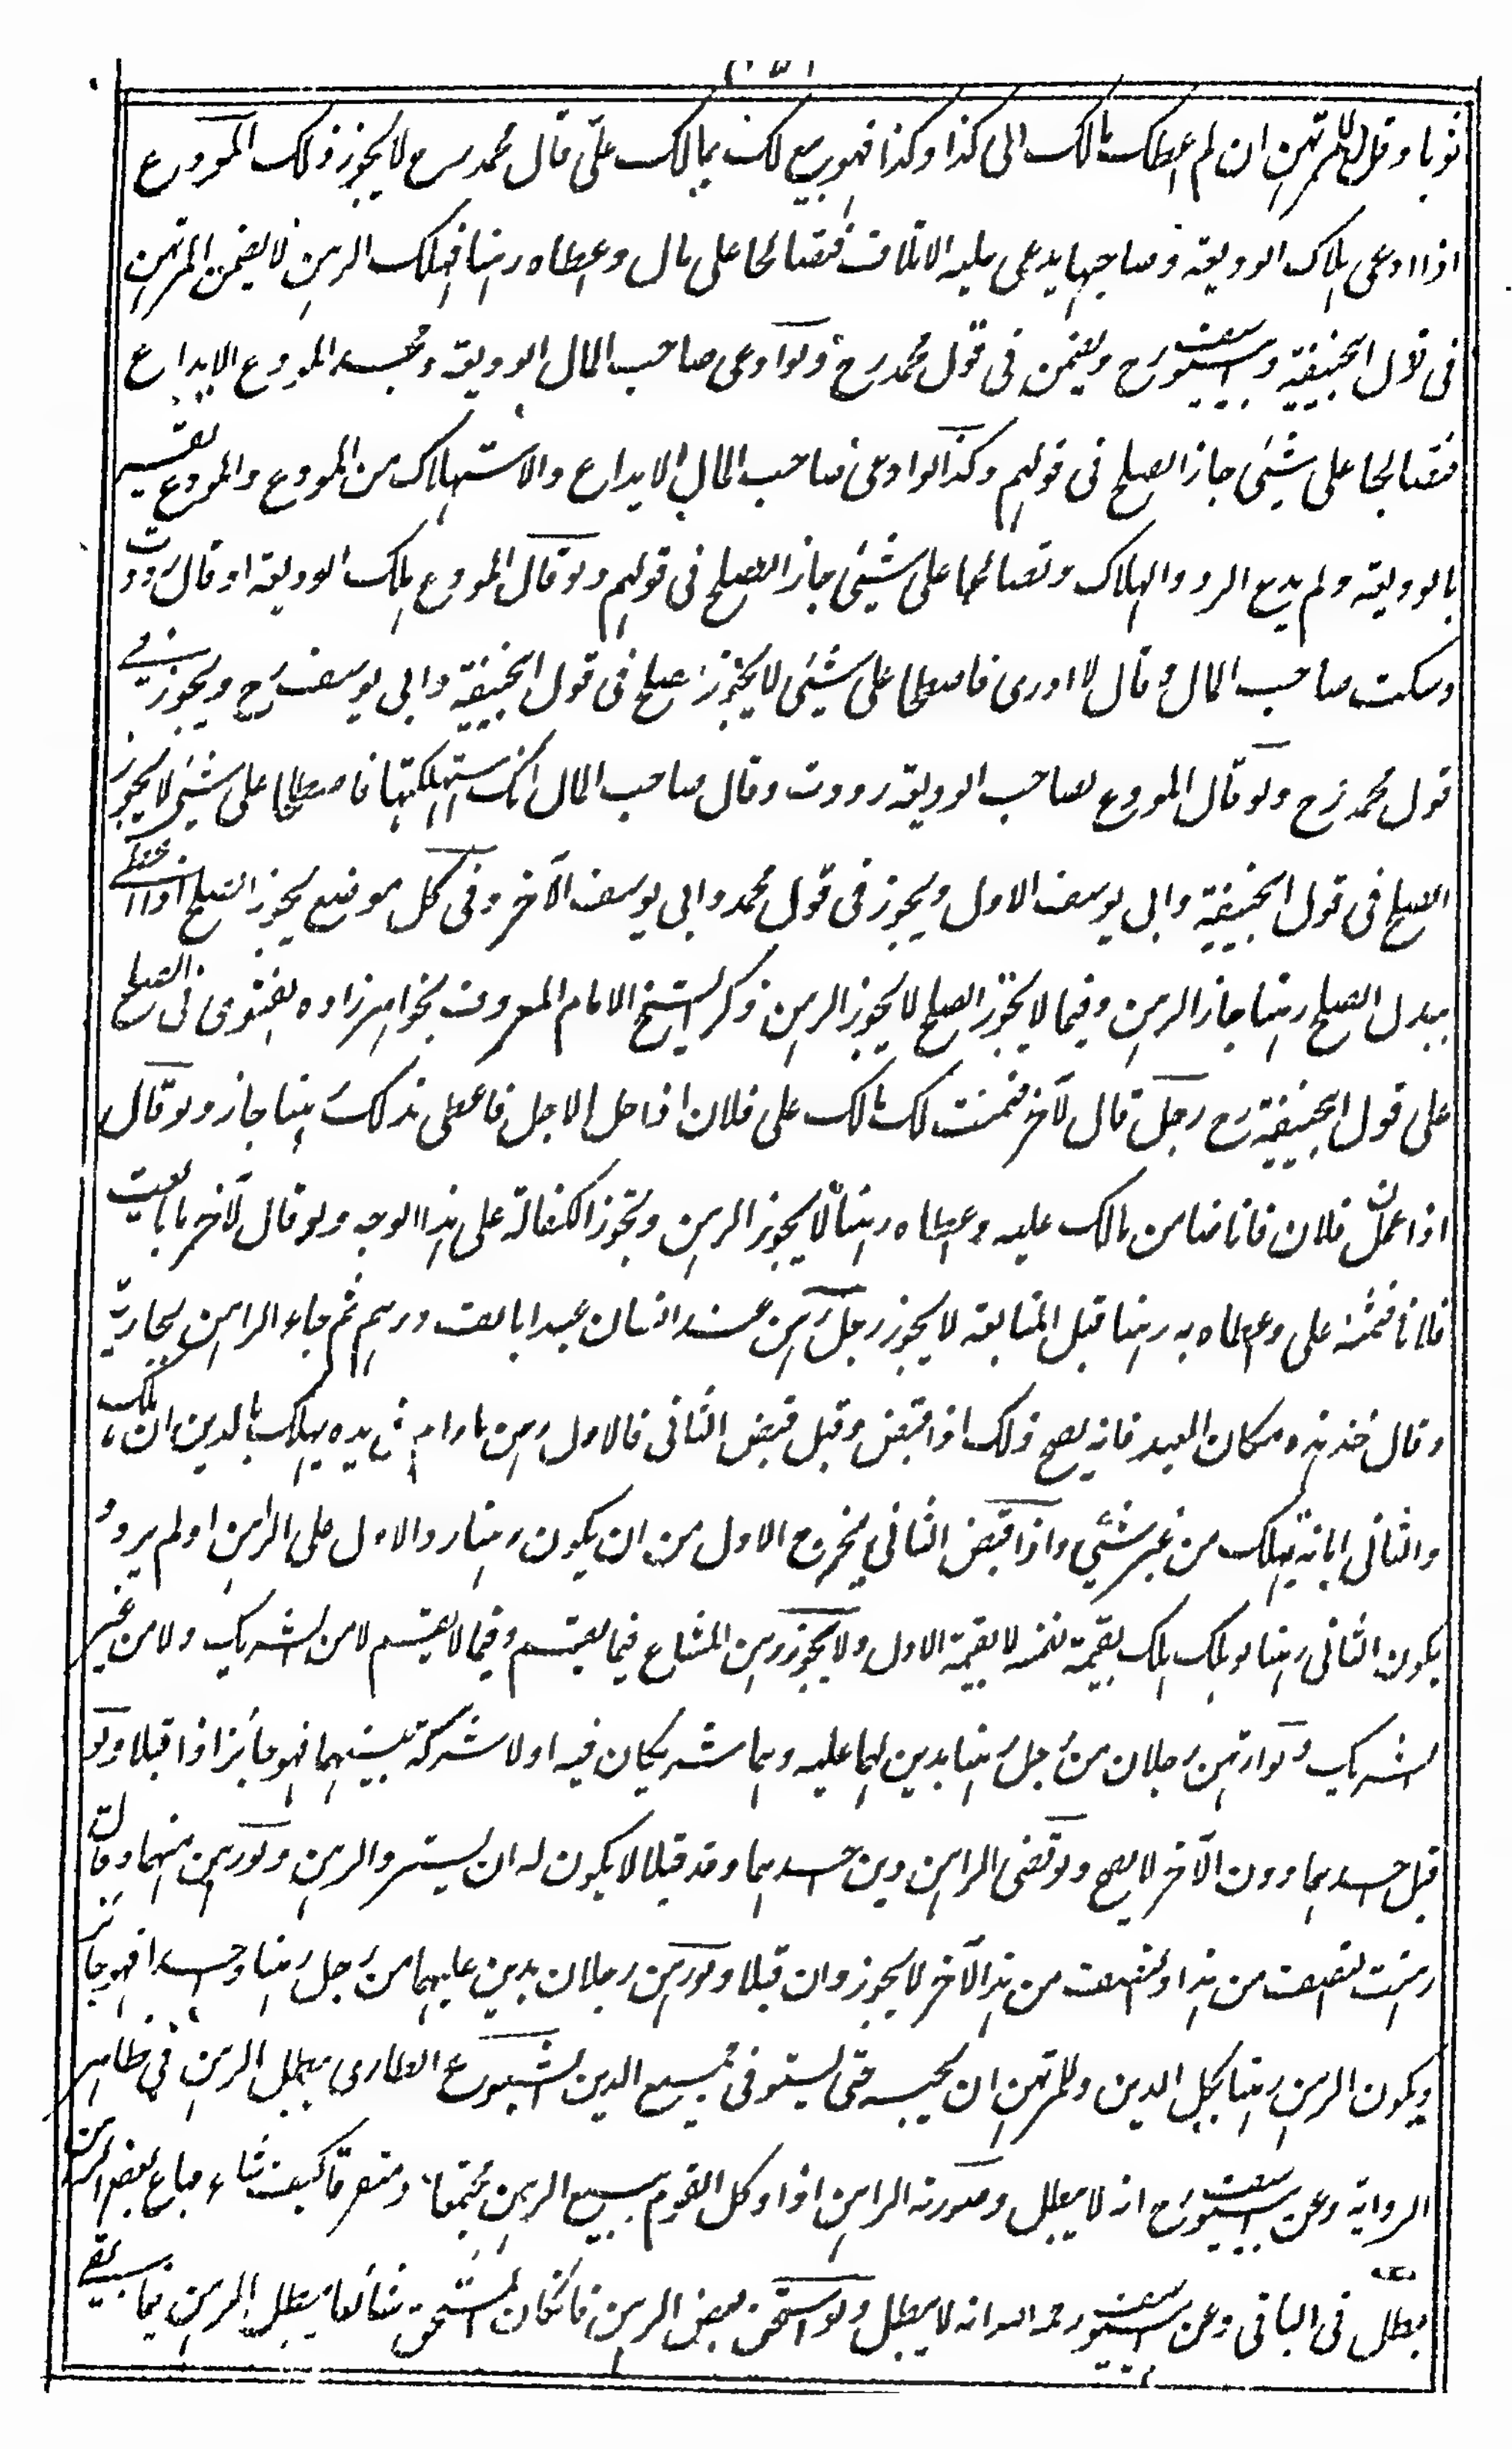 ثوبا وقال للمرتهن ان لم اعطك مالك الى كذا وكذا فهو بيع لك بمالك علىّ قال محمد رح لا يجوز ذلك المودع
اذا ادعى هلاك الوديعة وصاحبها يدعى عليه الاتلاف فتصالحا على مال واعطاه رهنا فهلك الرهن لا يضمن المرتهن
فى قول ابيحنيفة وابييوسف رح ويضمن فى قول محمد رح ولو ادعى صاحب المال الوديعة وجحد المودع الايداع
فتصالحا على شيئ جاز الصلح فى قولهم وكذا لو ادعى صاحب المال الايداع والاستهلاك من المودع والمودع يقر
بالوديعة ولم يدع الرد والهلاك وتصالحا على شيئ جاز الصلح فى قولهم ولو قال المودع هلك الوديعة او قال رددت
وسكت صاحب المال وقال لا ادرى فاصطلحا على شيئ لا يجوز الصلح فى قول ابيحنيفة وابى يوسف رح ويجوز فى
قول محمد رح ولو قال المودع لصاحب الوديعة رددت وقال صاحب المال انك استهلكتها فاصطلحا على شيئ لا يجوز
الصلح فى قول ابيحنيفة وابى يوسف الاول ويجوز فى قول محمد وابى يوسف الآخر وفى كل موضع يجوز الصلح اذا اعطى
ببدل الصلح رهنا جاز الرهن وفيما لا يجوز الصلح لا يجوز الرهن ذكر الشيخ الامام المعروف بخواهرزاده يفتوى فى الصلح
على قول ابيحنيفة رح رجل قال لآخر ضمنت لك مالك على فلان اذا حل الاجل فاعطى بذلك رهنا جاز ولو قال
اذا عمل فلان فانا ضامن مالك عليه واعطاه رهنا لا يجوز الرهن وتجوز الكفالة على هذا الوجه ولو قال لآخر ما بايعت
فلانا فثمنه على واعطاه به رهنا قبل المبايعة لا يجوز رجل رهن عند انسان عبدا بالف درهم ثم جاء الراهن بجارية
وقال خذ هذه مكان العبد فانه يصح ذلك اذا قبض وقبل قبض الثانى فالاول رهن مادام فى يده يهلك بالدين ان هلك
والثانى امانة يهلك من غير شيئ واذا قبض الثانى يخرج الاول من ان يكون رهنا رد الاول على الراهن او لم يرد و
يكون الثانى رهنا لو هلك هلك بقيمة نفسه لا بقيمة الاول ولا يجوز رهن المشاع فيما يقسم وفيما لا يقسم لا من الشريك ولا من غير
الشريك ولو ارتهن رجلان من رجل رهنا بدين لهما عليه وهما شريكان فيه او لا شركة بينهما فهو جائز اذا قبلا ولو
قبل احدهما دون الآخر لا يصح ولو قضى الراهن دين احدهما وقد قبلا لا يكون له ان يسترد الرهن ولو رهن منهما وقال
رهنت النصف من هذا والنصف من هذا الآخر لا يجوز وان قبلا ولو رهن رجلان بدين عليهما من رجل رهنا واحدا فهو جائز
ويكون الرهن رهنا بكل الدين وللمرتهن ان يحبسه حتى يستوفى جميع الدين الشيوع الطارى يبطل الرهن فى ظاهر
الرواية وعن ابييوسف رح انه لا يبطل وصورته الراهن اذا وكل القوم ببيع الرهن مجتمعا ومتفرقا كيف شاء فباع بعض الرهن
يبطل فى الباقى وعن ابييوسف رحمه الله انه لا يبطل ولو استحق بعض الرهن فانكان المستحق شائعا يبطل الرهن فيما يبقى